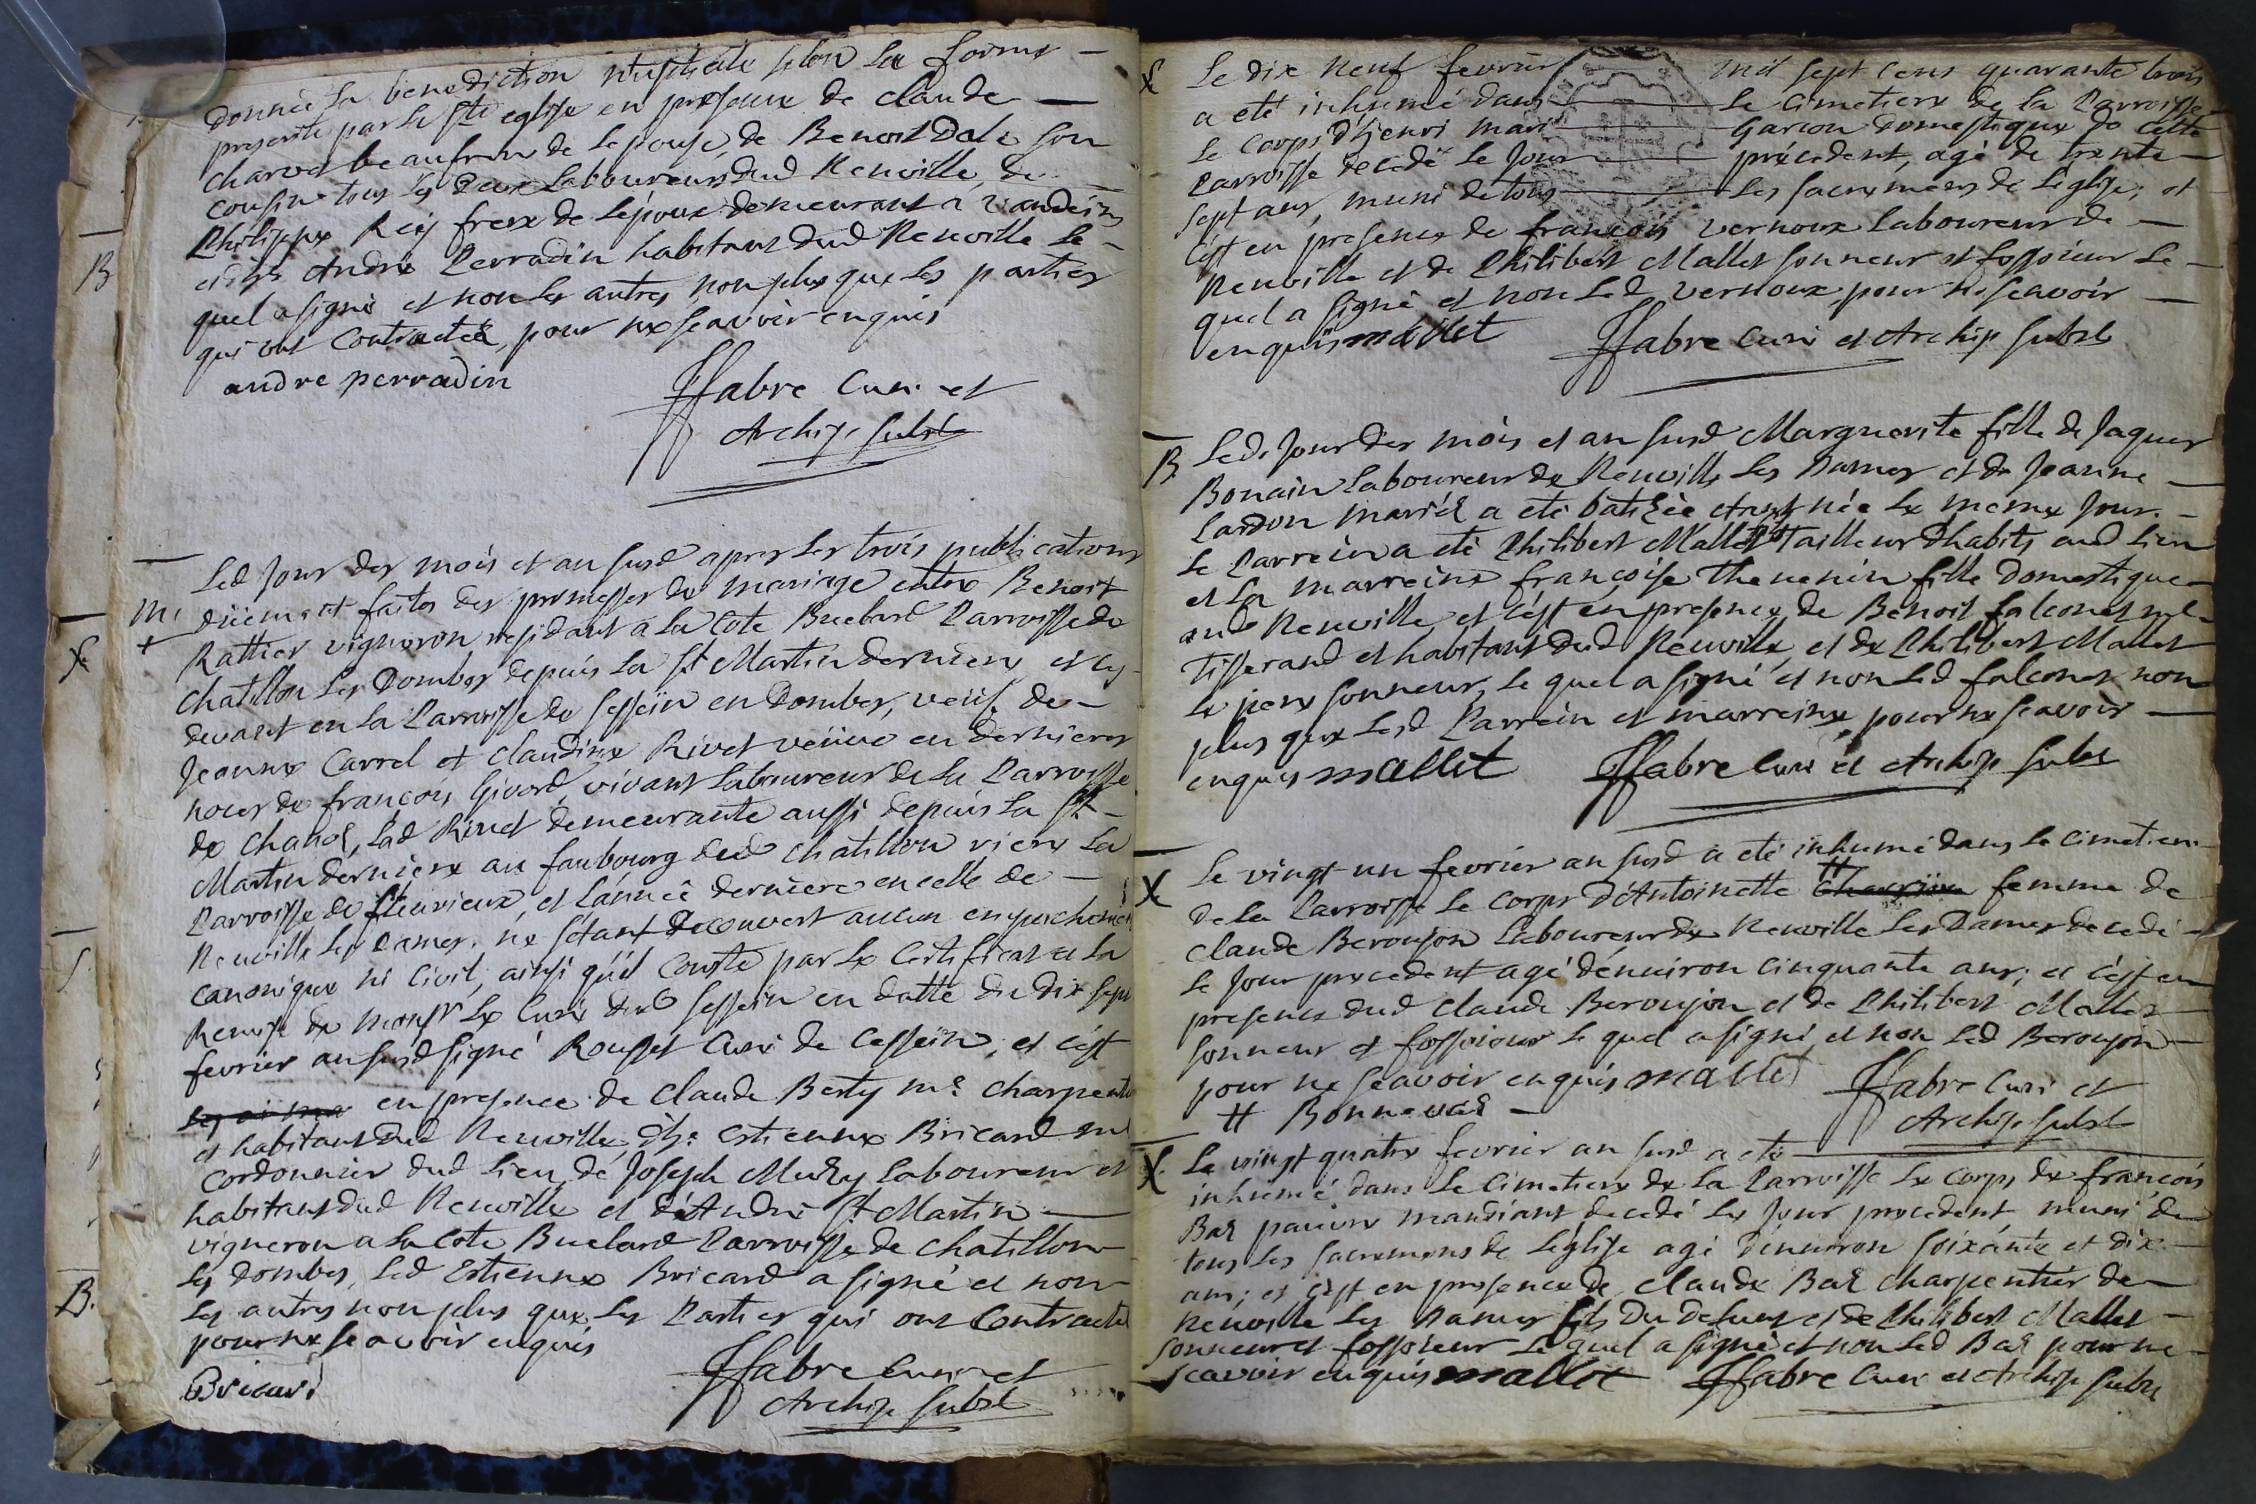 donnée la benediction nuptiale selon la forme
prescrite par la Ste eglise en presence de claude
charvet beaufrere de lepouse, de Benoit Dole son
cousin tous les deux Laboureurs dud Neuville, de
Philippe Rey frere de lépoux demeurant a vandeins
et dhe André Perradin habitant dud Neuville le
quel a signé et non les autres non plus que les parties
qui ont Contracté, pour ne scavoir enquis
andre perradin
ffabre Curé et
Archip. subst
M.
Led jour des mois et an susd apres les trois publications
düement faites des promesses de mariage entre Benoit
Rattier vigneron residant a la Cote Buelard Parroisse de
Chatillon les Dombes depuis la St Martin derniere et cy
devant en la Parroisse de Cesseïn en Dombes, veuf de
Jeanne Carrel et Claudine Rivet veüve en dernieres
noces de françois Givord, vivant laboureur de la Parroisse
de Chanoz, lad Rivet demeurante aussi depuis la St
Martin derniere au faubourg dud chatillon riere la
Parroisse de fleurieux, et l'année derniere en celle de
Neuville les Dames. ne sétant decouvert aucun empechement
canonique ni civil, ainsi qu'il Conste par le Certificat et la
Remise de Monsr le Curé dud Cessein en datte du dix sept
fevrier an susd signé Rousset Curé de Cessein; et c'est
en presence de Claude Berty me charpentier
et habitant dud Neuville, dhe Estienne Bricard me
Cordonnier dud lieu, de Joseph Muzy laboureur et
habitant dud Neuville et d'André St Martin
vigneron a la Cote Buelard Parroisse de Chatillon
les dombes, led Estienne Bricard a signé et non
les autres non plus que les Parties qui ont Contracté
pour ne scavoir enquis
Bricard
ffabre Curé et
Archip. subst
Le dix neuf fevrier mil sept cens quarante trois
a eté inhumé dans le cimetiere de la Parroisse
le corps d'henri mari garcon domestique de cette
Parroisse decedé le jour précedent, agé de trente
sept ans, muni de tous les sacremens de l'eglise, et
c'est en presence de françois vernoux laboureur de
Neuville et de Philibert Mallet sonneur et fossoieur le
quel a signé et non led vernoux pour ne scavoir
enquis mallet ffabre Curé et Archip. subst
B
Led. jour des mois et an susd Marguerite fille de Jaques
Bonain laboureur de Neuville les Dames et de Jeanne
Lardon mariéz a eté batizée etant née le meme jour.
le Parrein a eté Philibert Mallet tailleur d'habits aud lieu
et la marreine françoise Thevenin fille domestique
aud Neuville et c'est en presence de Benoit falconet me
Tisserand et habitant dud Neuville, et de Philibert Mallet
le pere sonneur, le quel a signé et non led falconet non
plus que lesd Parrein et marreine, pour ne scavoir
enquis mallet ffabre Curé et Archip. subst
X
Le vingt un fevrier an susd a eté inhumé dans le cimetiere
de la Parroisse le corps d'Antoinette # femme de
Claude Beroujon laboureur de Neuville les Dames decedé
le jour precedent agé dénuiron cinquante ans; et c'est en
presence dud Claude Beroujon et de Philibert Mallet
sonneur et fossoieur le quel a signé, et non led Beroujon
pour ne scavoir enquis mallet ffabre Curé et
# Bonneval Archip. subst
X.
Le vingt quatre fevrier an susd a eté
inhumé dans le cimetiere de la Parroisse le corps de françois
Baz pauvre mandiant decedé le jour precedent muni de
tous les sacremens de l'eglise agé d'enuiron soixante et dix
ans; et c'est en presence de Claude Baz charpentier de
Neuville les Dames fils du defunt et de Philibert Mallet
sonneur et fossoieur le quel a signé et non led Baz pour ne
scavoir enquis mallet ffabre Curé et Archip. subst